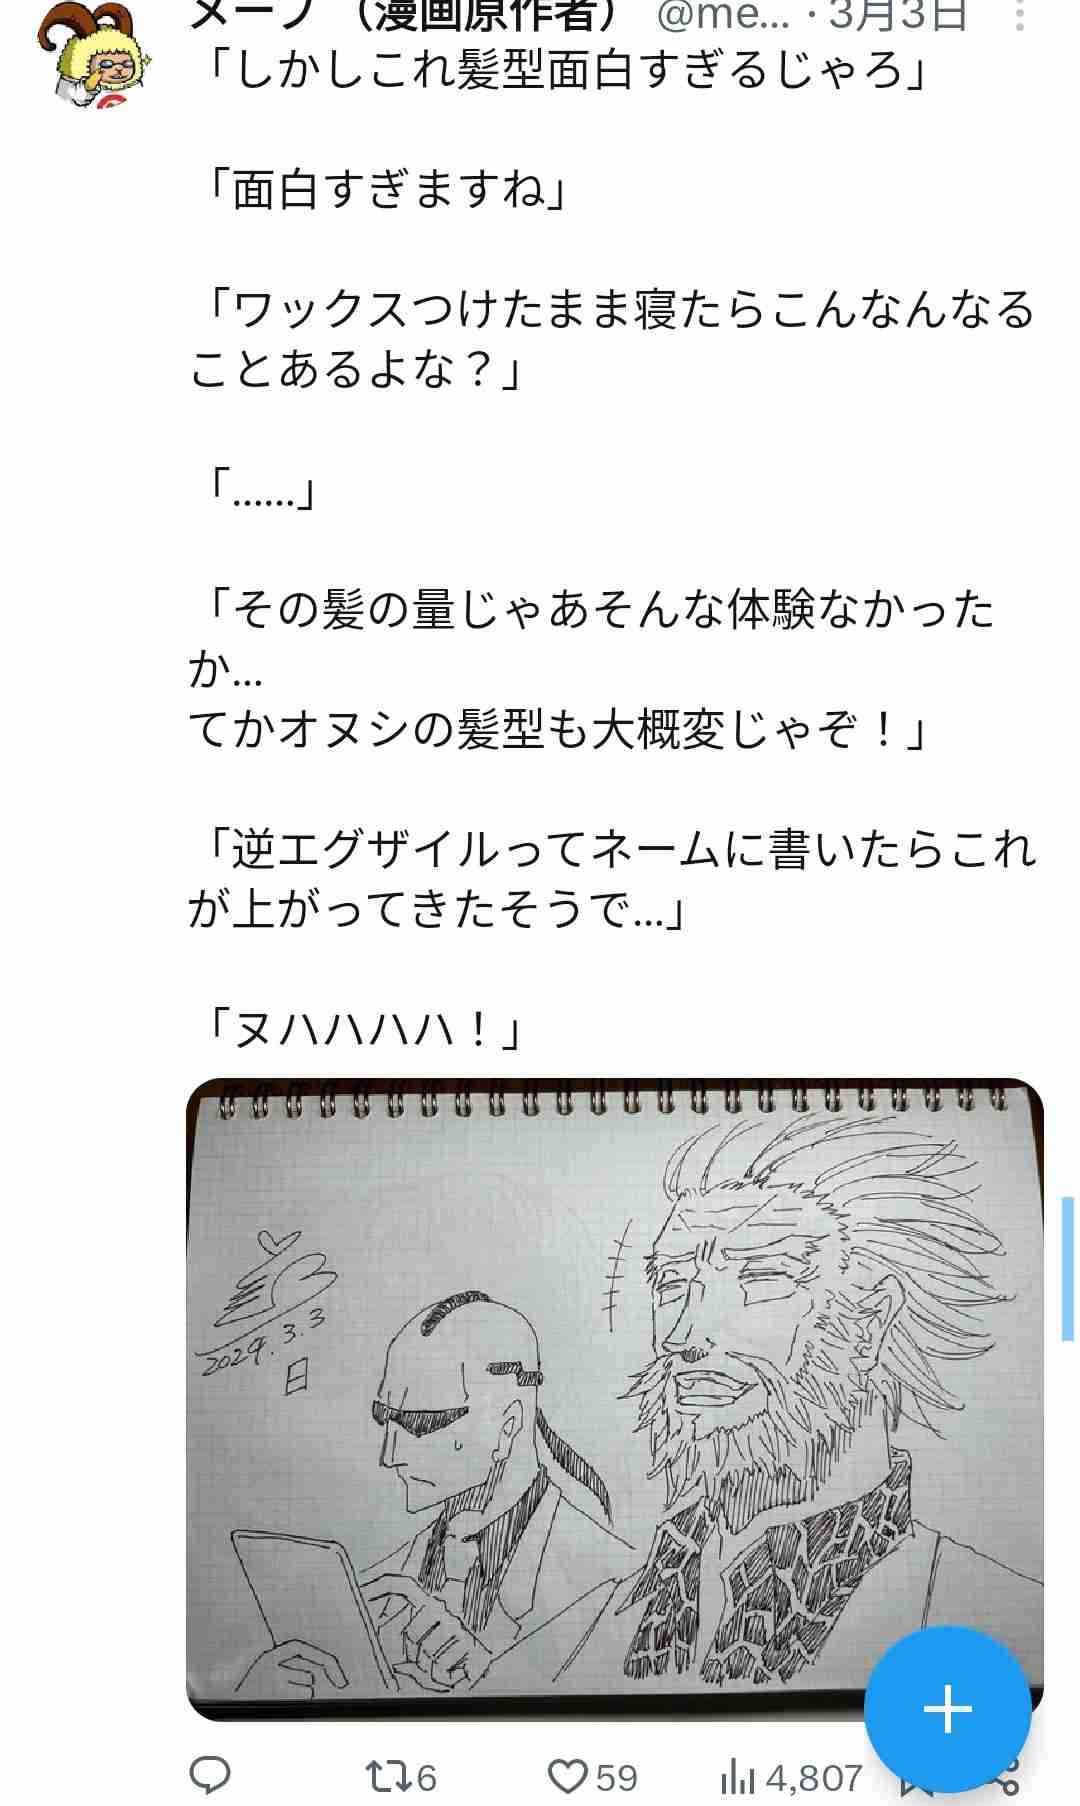 メープ（漫画原作者） @me... · 3月3日
「しかしこれ髪型面白すぎるじゃろ」
「面白すぎますね」
「ワックスつけたまま寝たらこんなんなる
ことあるよな？」
「......」
「その髪の量じゃあそんな体験なかった
か...
てかオヌシの髪型も大概変じゃぞ！」
「逆エグザイルってネームに書いたらこれ
が上がってきたそうで...」
「ヌハハハハ！」
2024.3.3
日
6
59
4,807